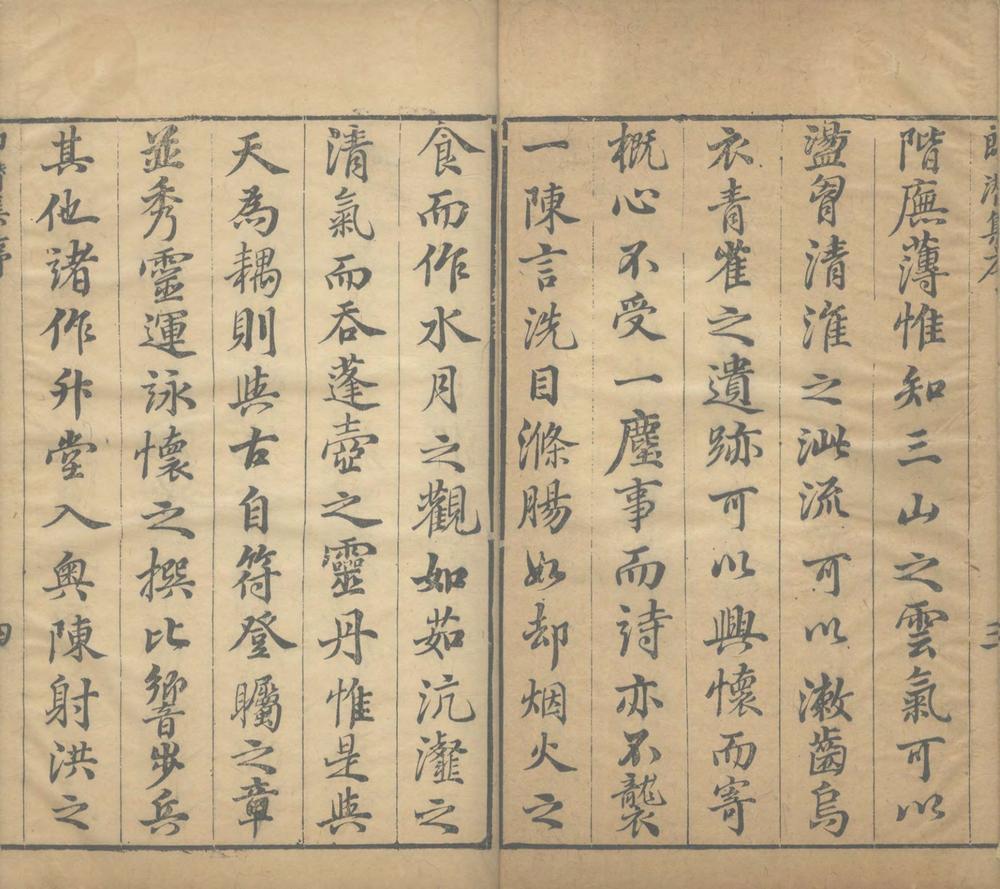 階廡薄惟知三山之雲氣可以
盪胷清淮之泚流可以漱齒烏
衣青雀之遺跡可以興懷而寄
概心不受一塵事而詩亦不襲
一陳言洗目滌腸如却烟火之
食而作水月之觀如茹沆瀣之
清氣而吞蓬壺之靈丹惟是與
天為耦則與古自符登矚之章
並秀靈運詠懷之撰比響步兵
其他諸作升堂入奥陳射洪之
三
四